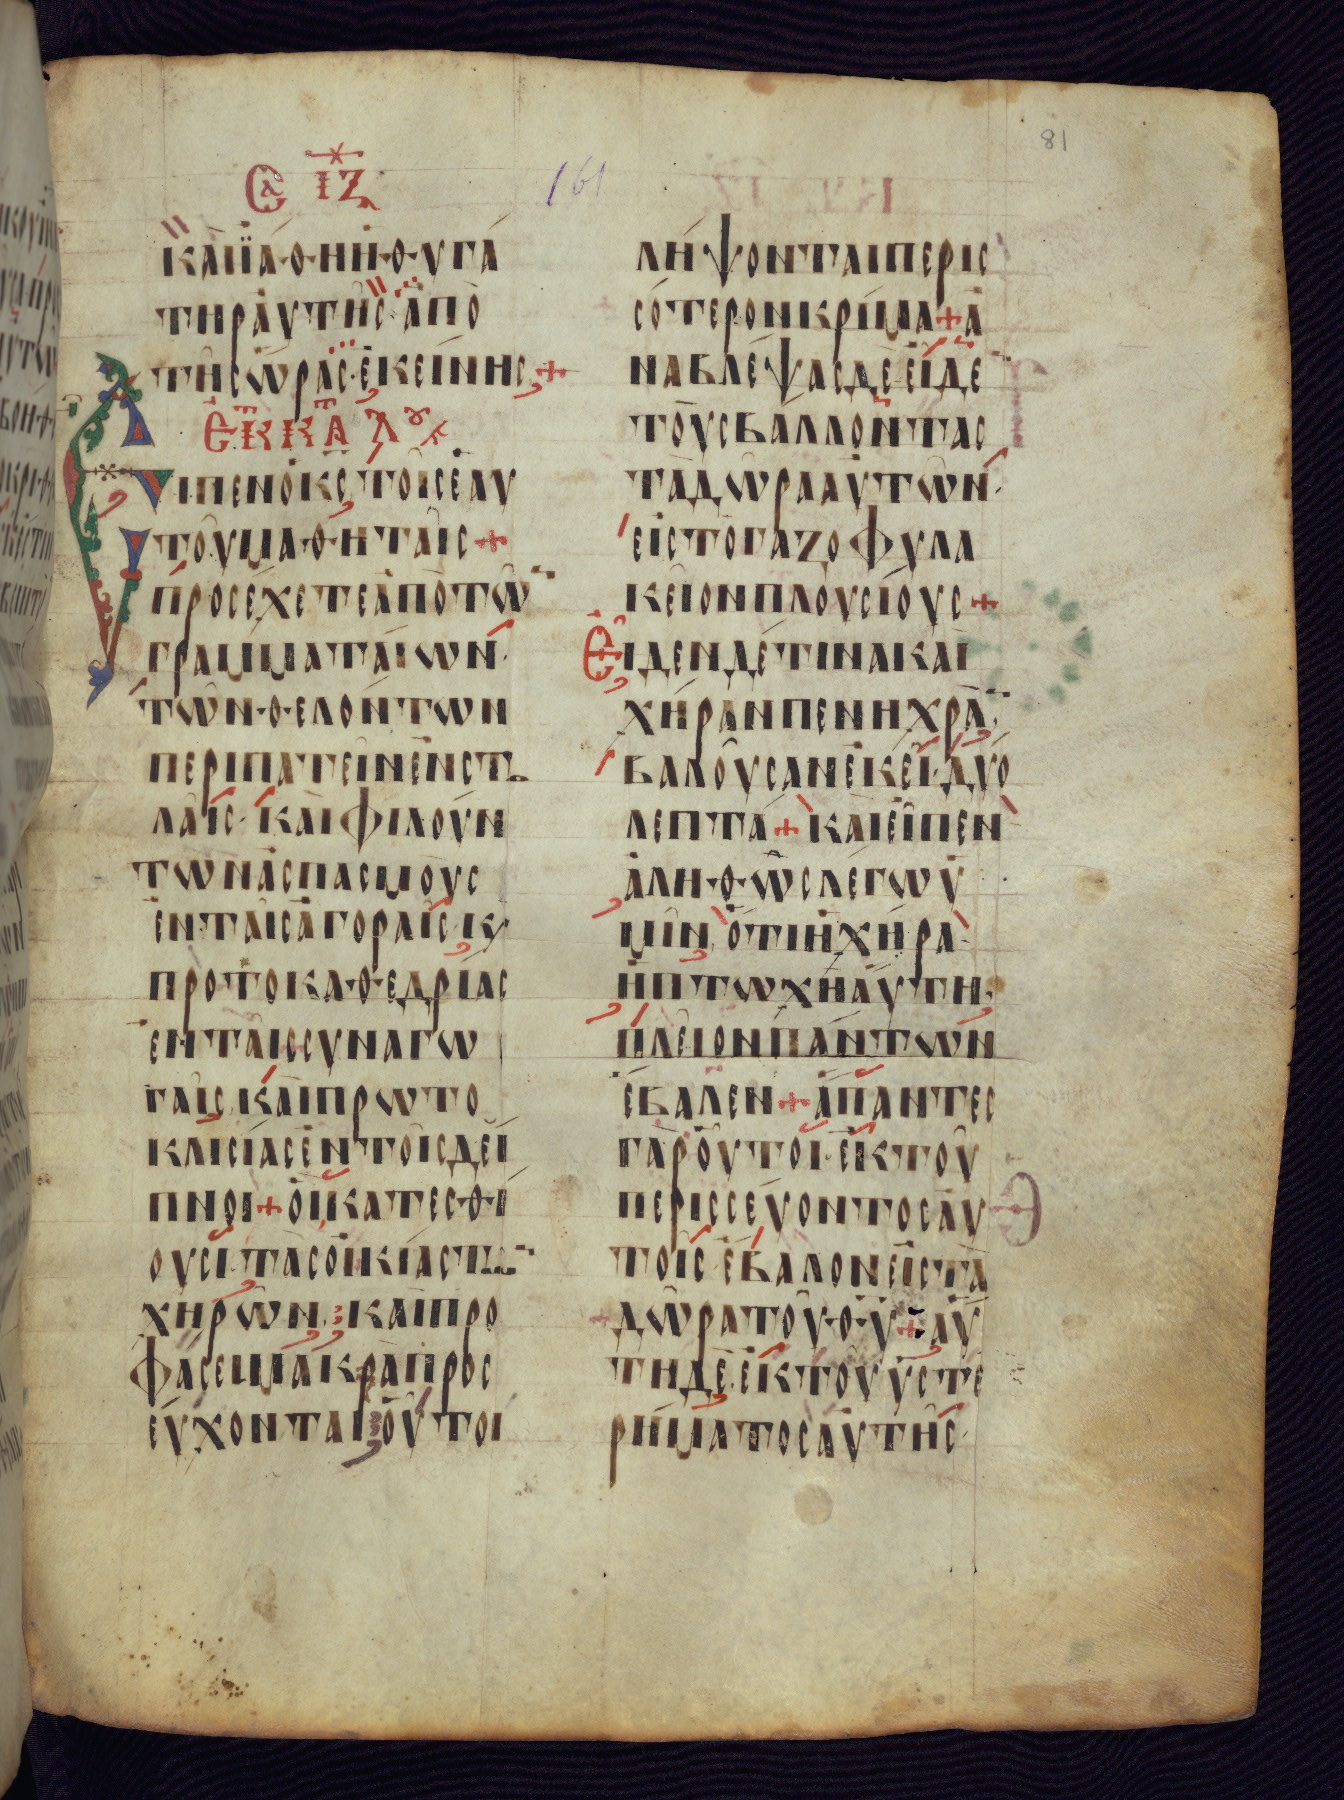 81
161
ϹΑ ΙΖ
ΚΑΙΪΑΘΗΗΘΥΓΑ
ΤΗΡΑΥΤΗϹΑΠΟ
ΤΗϹѠΡΑϹΕΚΕΙΝΗϹ+
ΕΚ Κ̅ Α̅ ΛΟΥΚ
ΙΠΕΝΟΚϹΤΟΙϹΕΑΥ
ΤΟΥΜΑΘΗΤΑΙϹ+
ΠΡΟϹΕΧΕΤΕΑΠΟΤѠ̅
ΓΡΑΜΜΑΤΑΙѠΝ·
ΤѠΝΘΕΛΟΝΤѠΝ
ΠΕΡΙΠΑΤΕΙΝΕΝϹΤ
ΛΑΙϹ·ΚΑΙΦΙΛΟΥΝ
ΤѠΝΑϹΠΑϹΜΟΥϹ
ΕΝΤΑΙϹΑΓΟΡΑΙϹ·Κ
ΠΡΟΤΟΚΑΘΕΔΡΙΑϹ
ΕΝΤΑΙϹϹΥΝΑΓѠ
ΓΑΙϹ·ΚΑΙΠΡѠΤΟ
ΚΛΙϹΙΑϹΕΝΤΟΙϹΔΕΙ
ΠΝΟΙ+ΟΙΚΑΤΕϹΘΙ
ΟΥϹΙ·ΤΑϹΟΙΚΙΑϹΤ
ΧΗΡѠΝ·ΚΑΙΠΡΟ
ΦΑϹΕΙΜΑΚΡΑΠΡΟϹ
ΕΥΧΟΝΤΑΙ·ΟΥΤΟΙ
ΛΗΨΟΝΤΑΙΠΕΡΙϹ
ϹΟΤΕΡΟΝΚΡΙΜΑ+Α
ΝΑΒΛΕΨΑϹΔΕΕΙΔΕ
ΤΟΥϹΒΑΛΛΟΝΤΑϹ
ΤΑΔѠΡΑΑΥΤѠΝ·
ΕΙϹΤΟΓΑΖΟΦΥΛΑ
ΚΕΙΟΝΠΛΟΥϹΙΟΥϹ+
ΕΙΔΕΝΔΕΤΙΝΑΚΑΙ
ΧΗΡΑΝΠΕΝΗΧΡΑ̅·
ΒΑΛΟΥϹΑΝΕΚΕΙ·ΔΥΟ
ΛΕΠΤΑ+ΚΑΙΕΙΠΕΝ
ΑΛΗΘѠϹΛΕΓѠΥ
ΜΙΝ·ΟΤΙΗΧΗΡΑ·
ΗΠΤѠΧΗΑΥΤΗ·
ΠΛΕΙΟΝΠΑΝΤѠΝ
ΕΒΑΛΕΝ+ΑΠΑΝΤΕϹ
ΓΑΡΟΥΤΟΙ·ΕΚΤΟΥ
ΠΕΡΙϹϹΕΥΟΝΤΟϹΑΥ
ΤΟΙϹ·ΕΒΑΛΟΝΕΙϹΤΑ
ΔѠΡΑΤΟΥΘΥ+ΑΥ
ΤΗΔΕ·ΕΚΤΟΥΥϹΤΕ
ΡΗΜΑΤΟϹΑΥΤΗϹ·